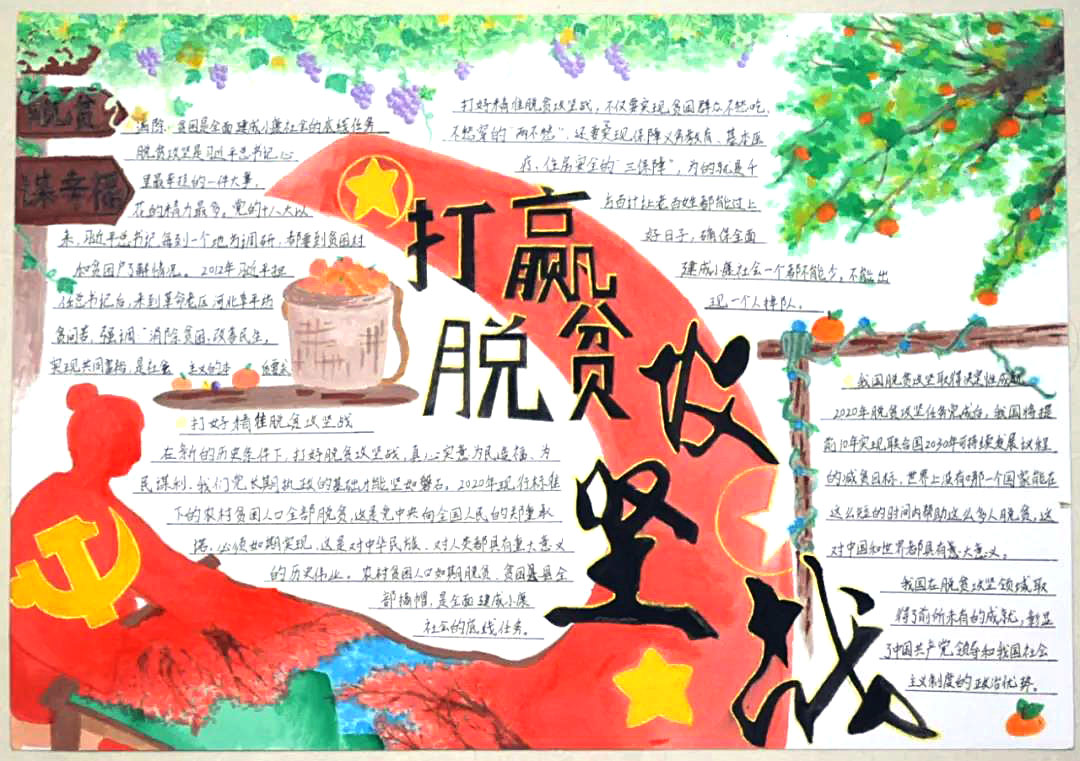 脱贫
幸福
消除贫困是全面建成小康社会的底线任务
脱贫攻坚是习近平总书记心
里最牵挂的一件大事,
花的精力最多。党的十八大以
来,习近平总书记每到一个地方调研,都要到贫困村
和贫困户了解情况。2012年习近平担
任总书记后,来到革命老区河北阜平访
贫问苦,强调"消除贫困,改善民生,
实现共同富裕,是社会主义的本
打好精准脱贫攻坚战,不仅要实现贫困群众不愁吃、
不愁穿的"两不愁",还要实现保障义务教育、基本医
疗、住房安全的"三保障",为的就是千
方百计让老百姓都能过上
好日子,确保全面
建成小康社会一个都不能少,不能出
现一个人掉队。
打赢
脱贫
攻
坚
战
打好精准脱贫攻坚战
在新的历史条件下,打好脱贫攻坚战,真心实意为民造福、为
民谋利,我们党长期执政的基础才能坚如磐石。2020年现行标准
下的农村贫困人口全部脱贫,这是党中央向全国人民的郑重承
诺,必须如期实现,这是对中华民族、对人类都具有重大意义
的历史伟业。农村贫困人口如期脱贫、贫困县全
部摘帽,是全面建成小康
社会的底线任务。
我国脱贫攻坚取得决定性成
2020年脱贫攻坚任务完成后,我国将提
前10年实现联合国2030年可持续发展议程
的减贫目标,世界上没有哪一个国家能在
这么短的时间内帮助这么多人脱贫,这
对中国和世界都具有意大意义。
我国在脱贫攻坚领域取
得了前所未有的成就,彰显
了中国共产党领导和我国社会
主义制度的政治优势。